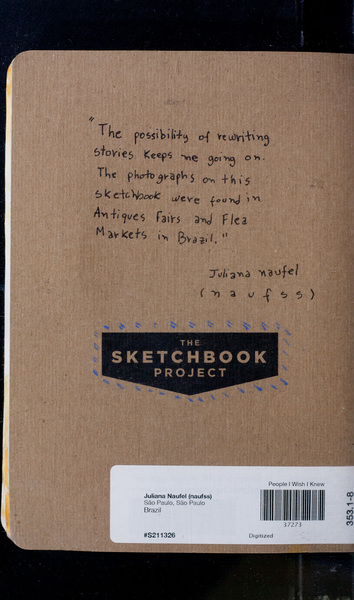 "The possibility of rewriting
stories keeps me going on.
The photographs on this
sketchbook were found in
Antiques Fairs and Flea
Markets in Brazil."
Juliana naufel
(naufss)
THE
SKETCHBOOK
PROJECT
People I Wish I Knew
Juliana Naufel (naufss)
São Paulo, São Paulo
Brazil
37273
#S211326
Digitized
353.1-8